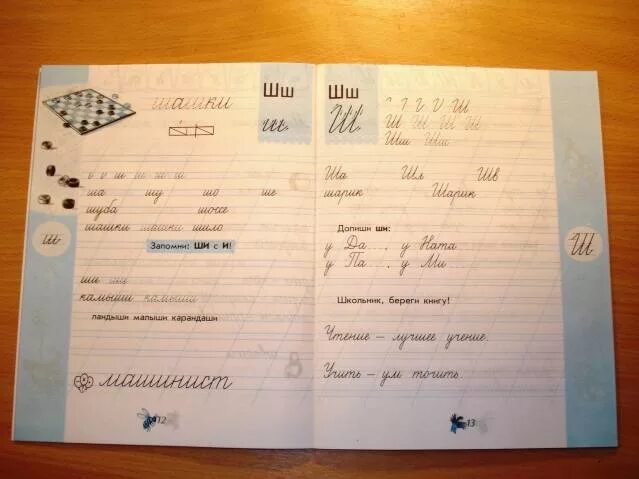 шашки
Шш
ш
ш ш ш
ша шу шо ше
шуба шоссе
шашки шашки шило
ш
Запомни: ШИ с И!
ши ши
камыши камыши
ландыши малыши карандаши
машинист
12
Шш
Ш
Ш
Ш Ш Ш Ш
Шш Шш
Ша Шл Шв
шарик Шарик
Допиши ши:
у Да..., у Ната...
у Па..., у Ми...
Ш
Школьник, береги книгу!
Чтение – лучшее учение.
Учить – ум точить.
13